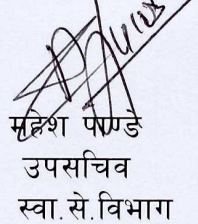 महेश पाण्डे
उपसचिव
स्वा.से.विभाग